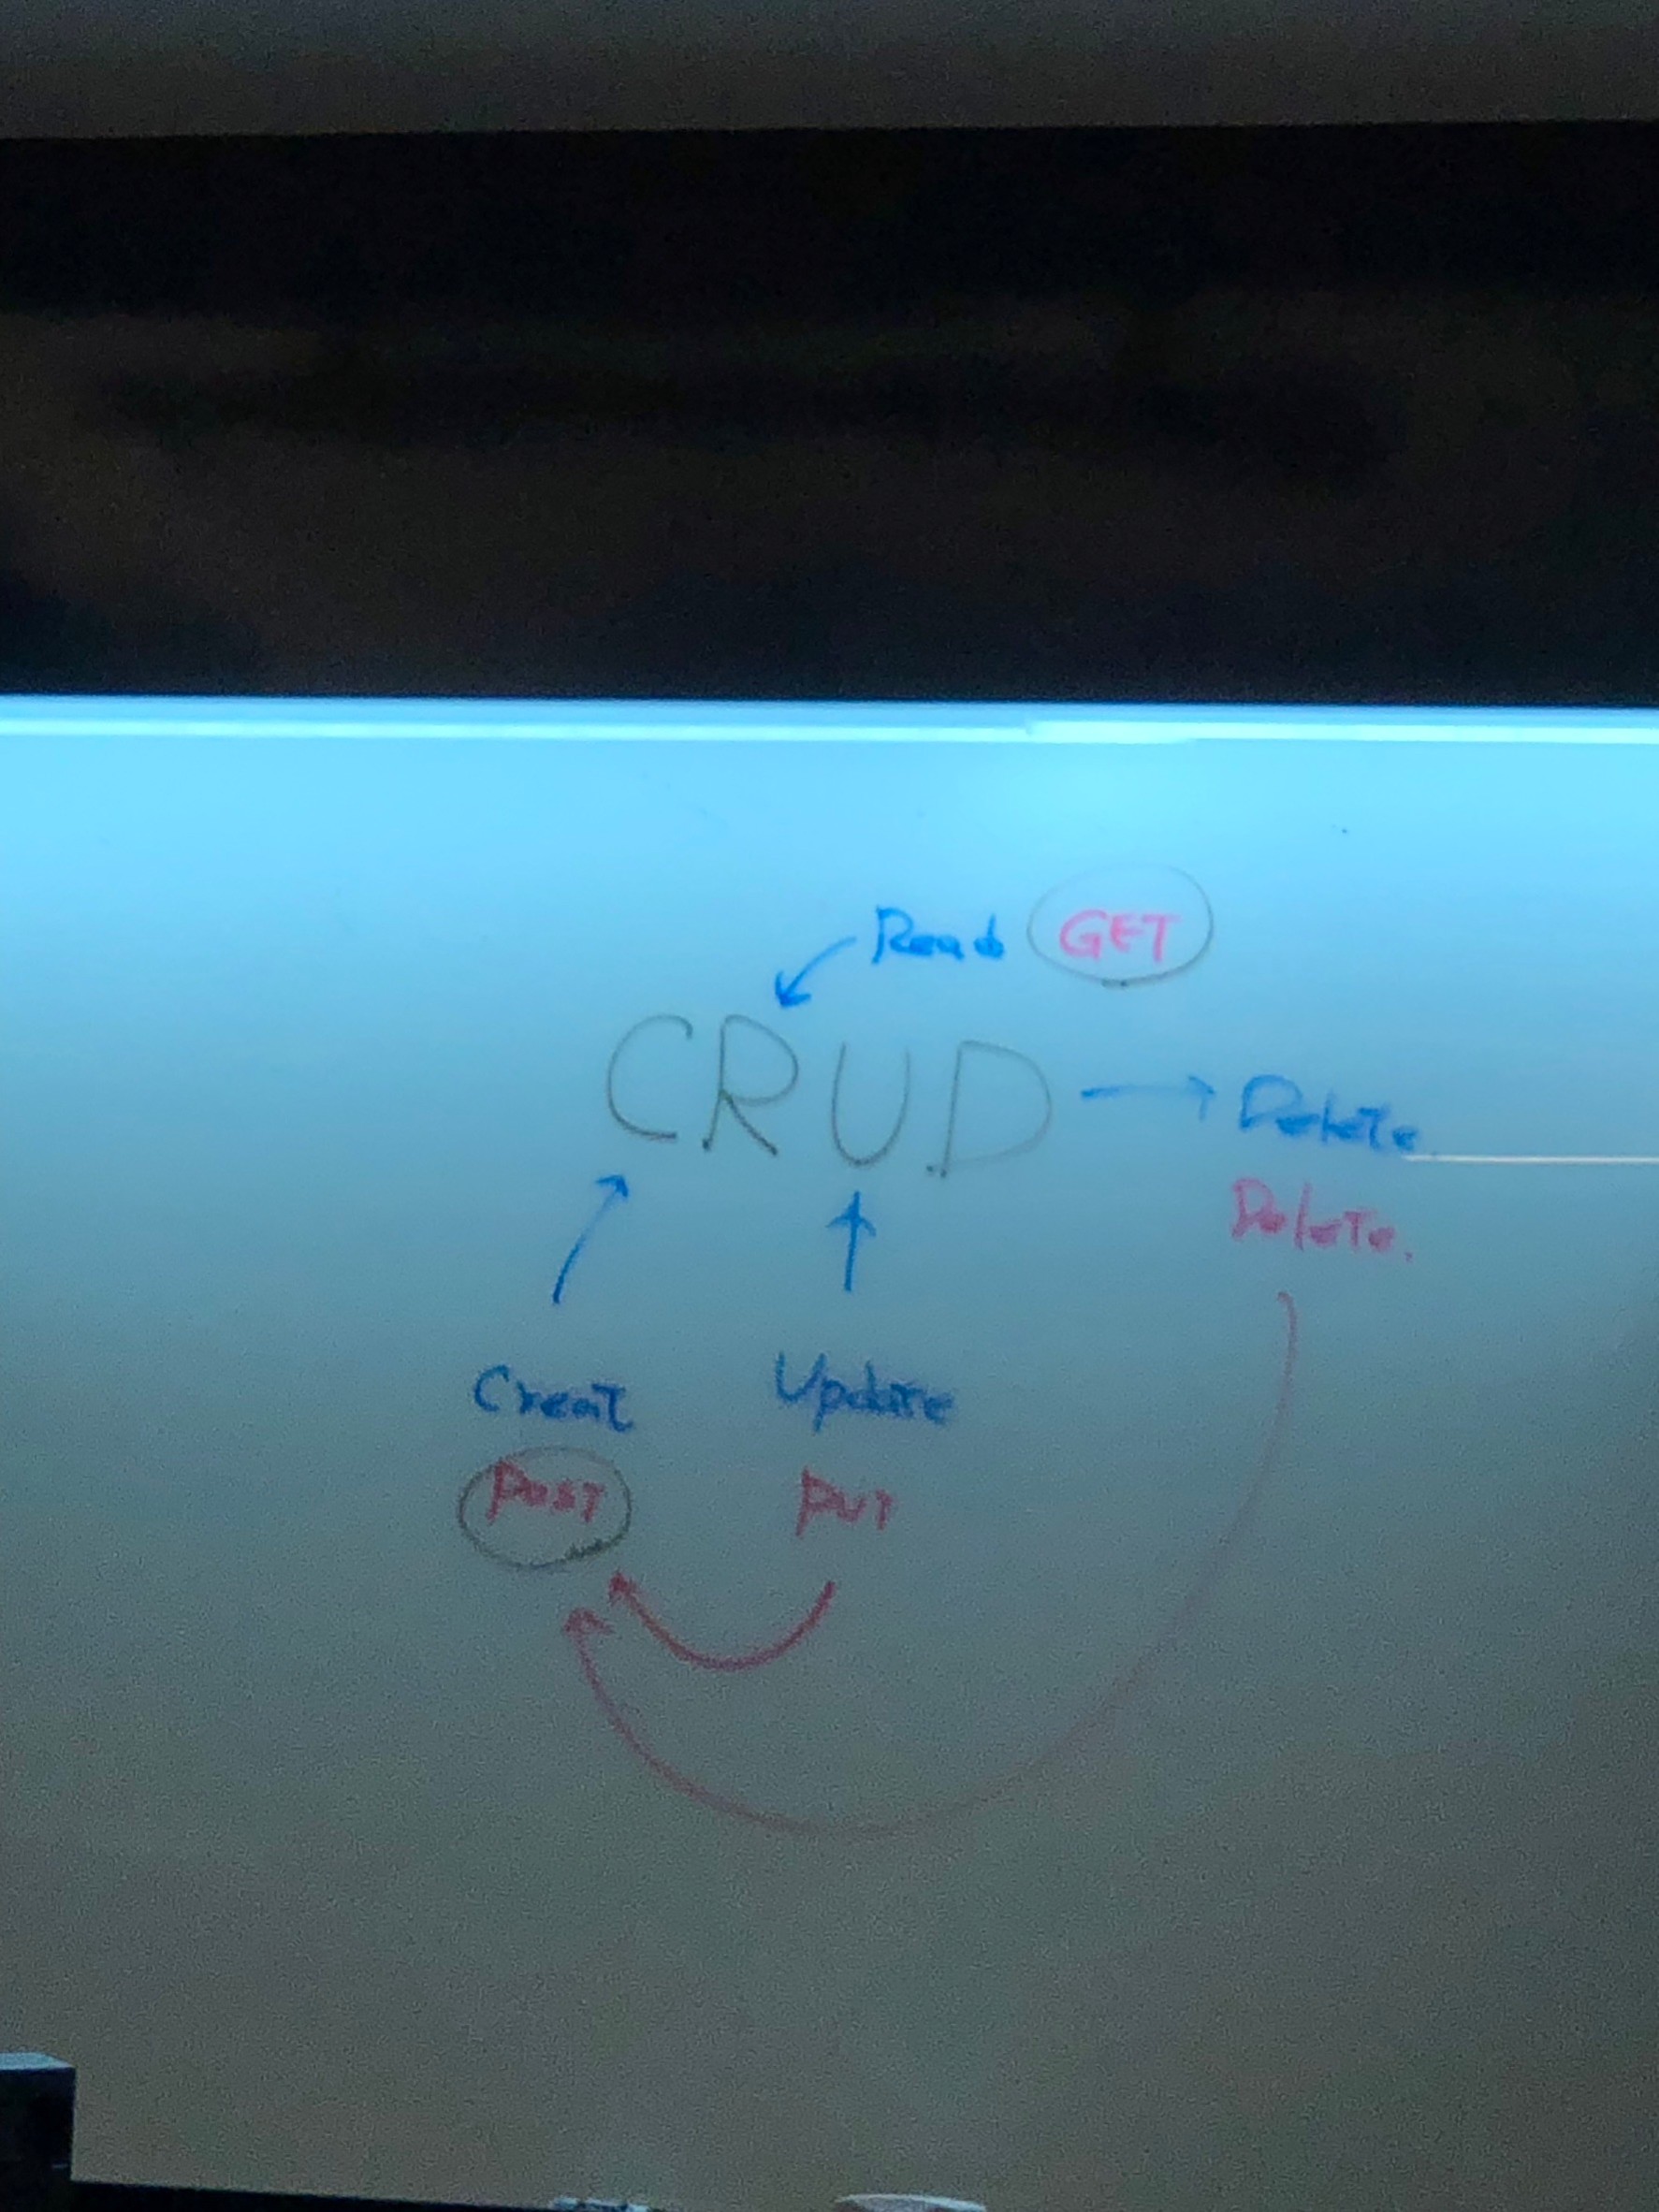 Read GET
CRUD
Delete
Delete.
Creat Update
POST PUT